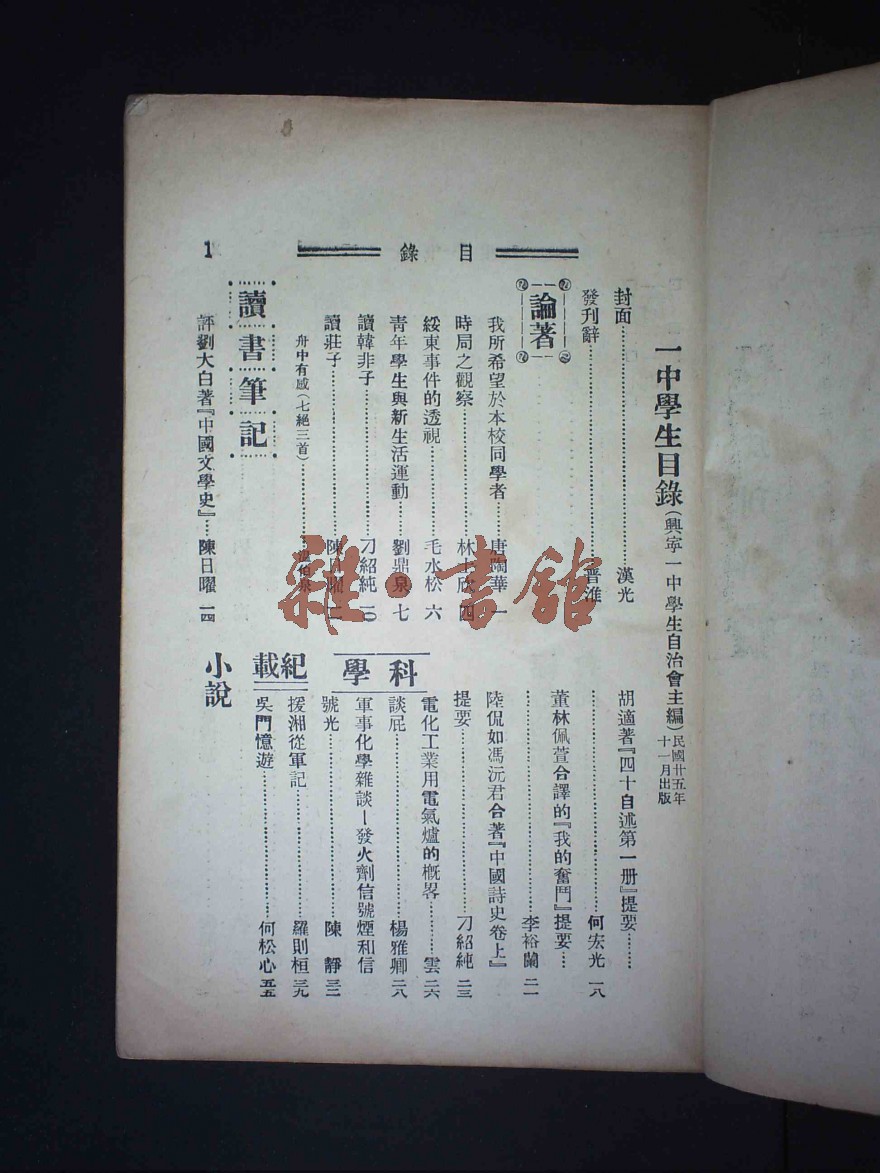 目錄
1
一中學生目錄(興寧一中學生自治會主編)民國廿五年十一月出版
封面……漢光
發刊辭……晋淮
論著
我所希望於本校同學者……唐陶華 一
時局之觀察……林七欣 四
綏東事件的透視……毛水松 六
青年學生與新生活運動……劉鼎泉 七
讀韓非子……刁紹純 一〇
讀莊子……陳日曜 一二
舟中有感(七絕三首)……
讀書筆記
評劉大白著『中國文學史』…陳日曜 一四
胡適著『四十自述第一册』提要………
……何宏光 一八
董林佩萱合譯的『我的奮鬥』提要…
……李裕蘭 二一
陸侃如馮沅君合著『中國詩史卷上』
提要……刁紹純 二三
科學
電化工業用電氣爐的概畧………雲 二六
談屁……楊雅卿 二八
軍事化學雜談—發火劑信號煙和信
號光……陳靜 三二
紀載
援湘從軍記……羅則桓 三九
吳門憶遊……何松心 五五
小說
雜·書館